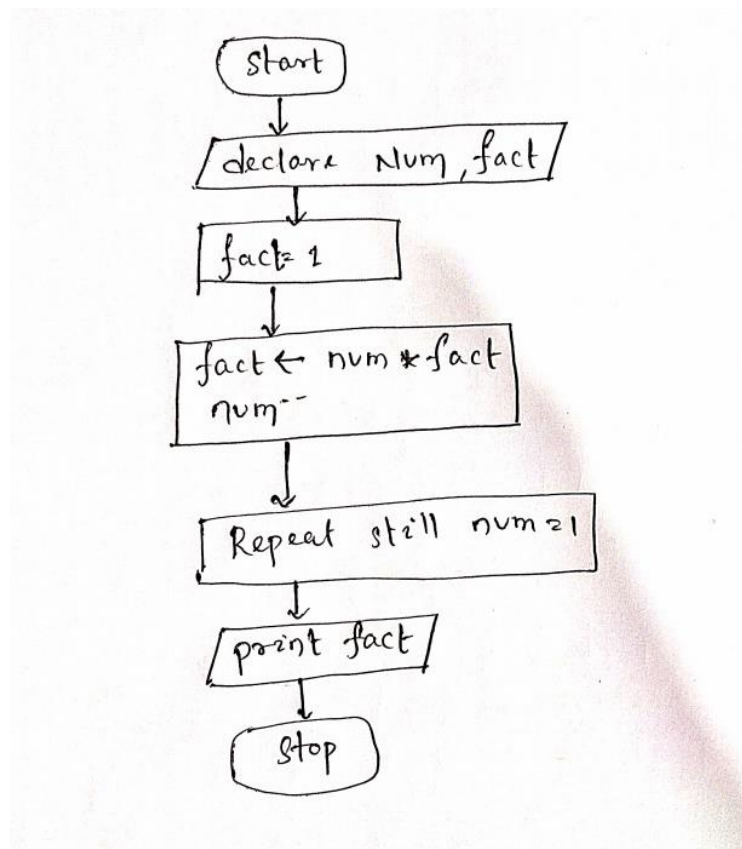 Start
declare Num, fact
fact= 1
fact ← num * fact
num--
Repeat still num=1
print fact
Stop